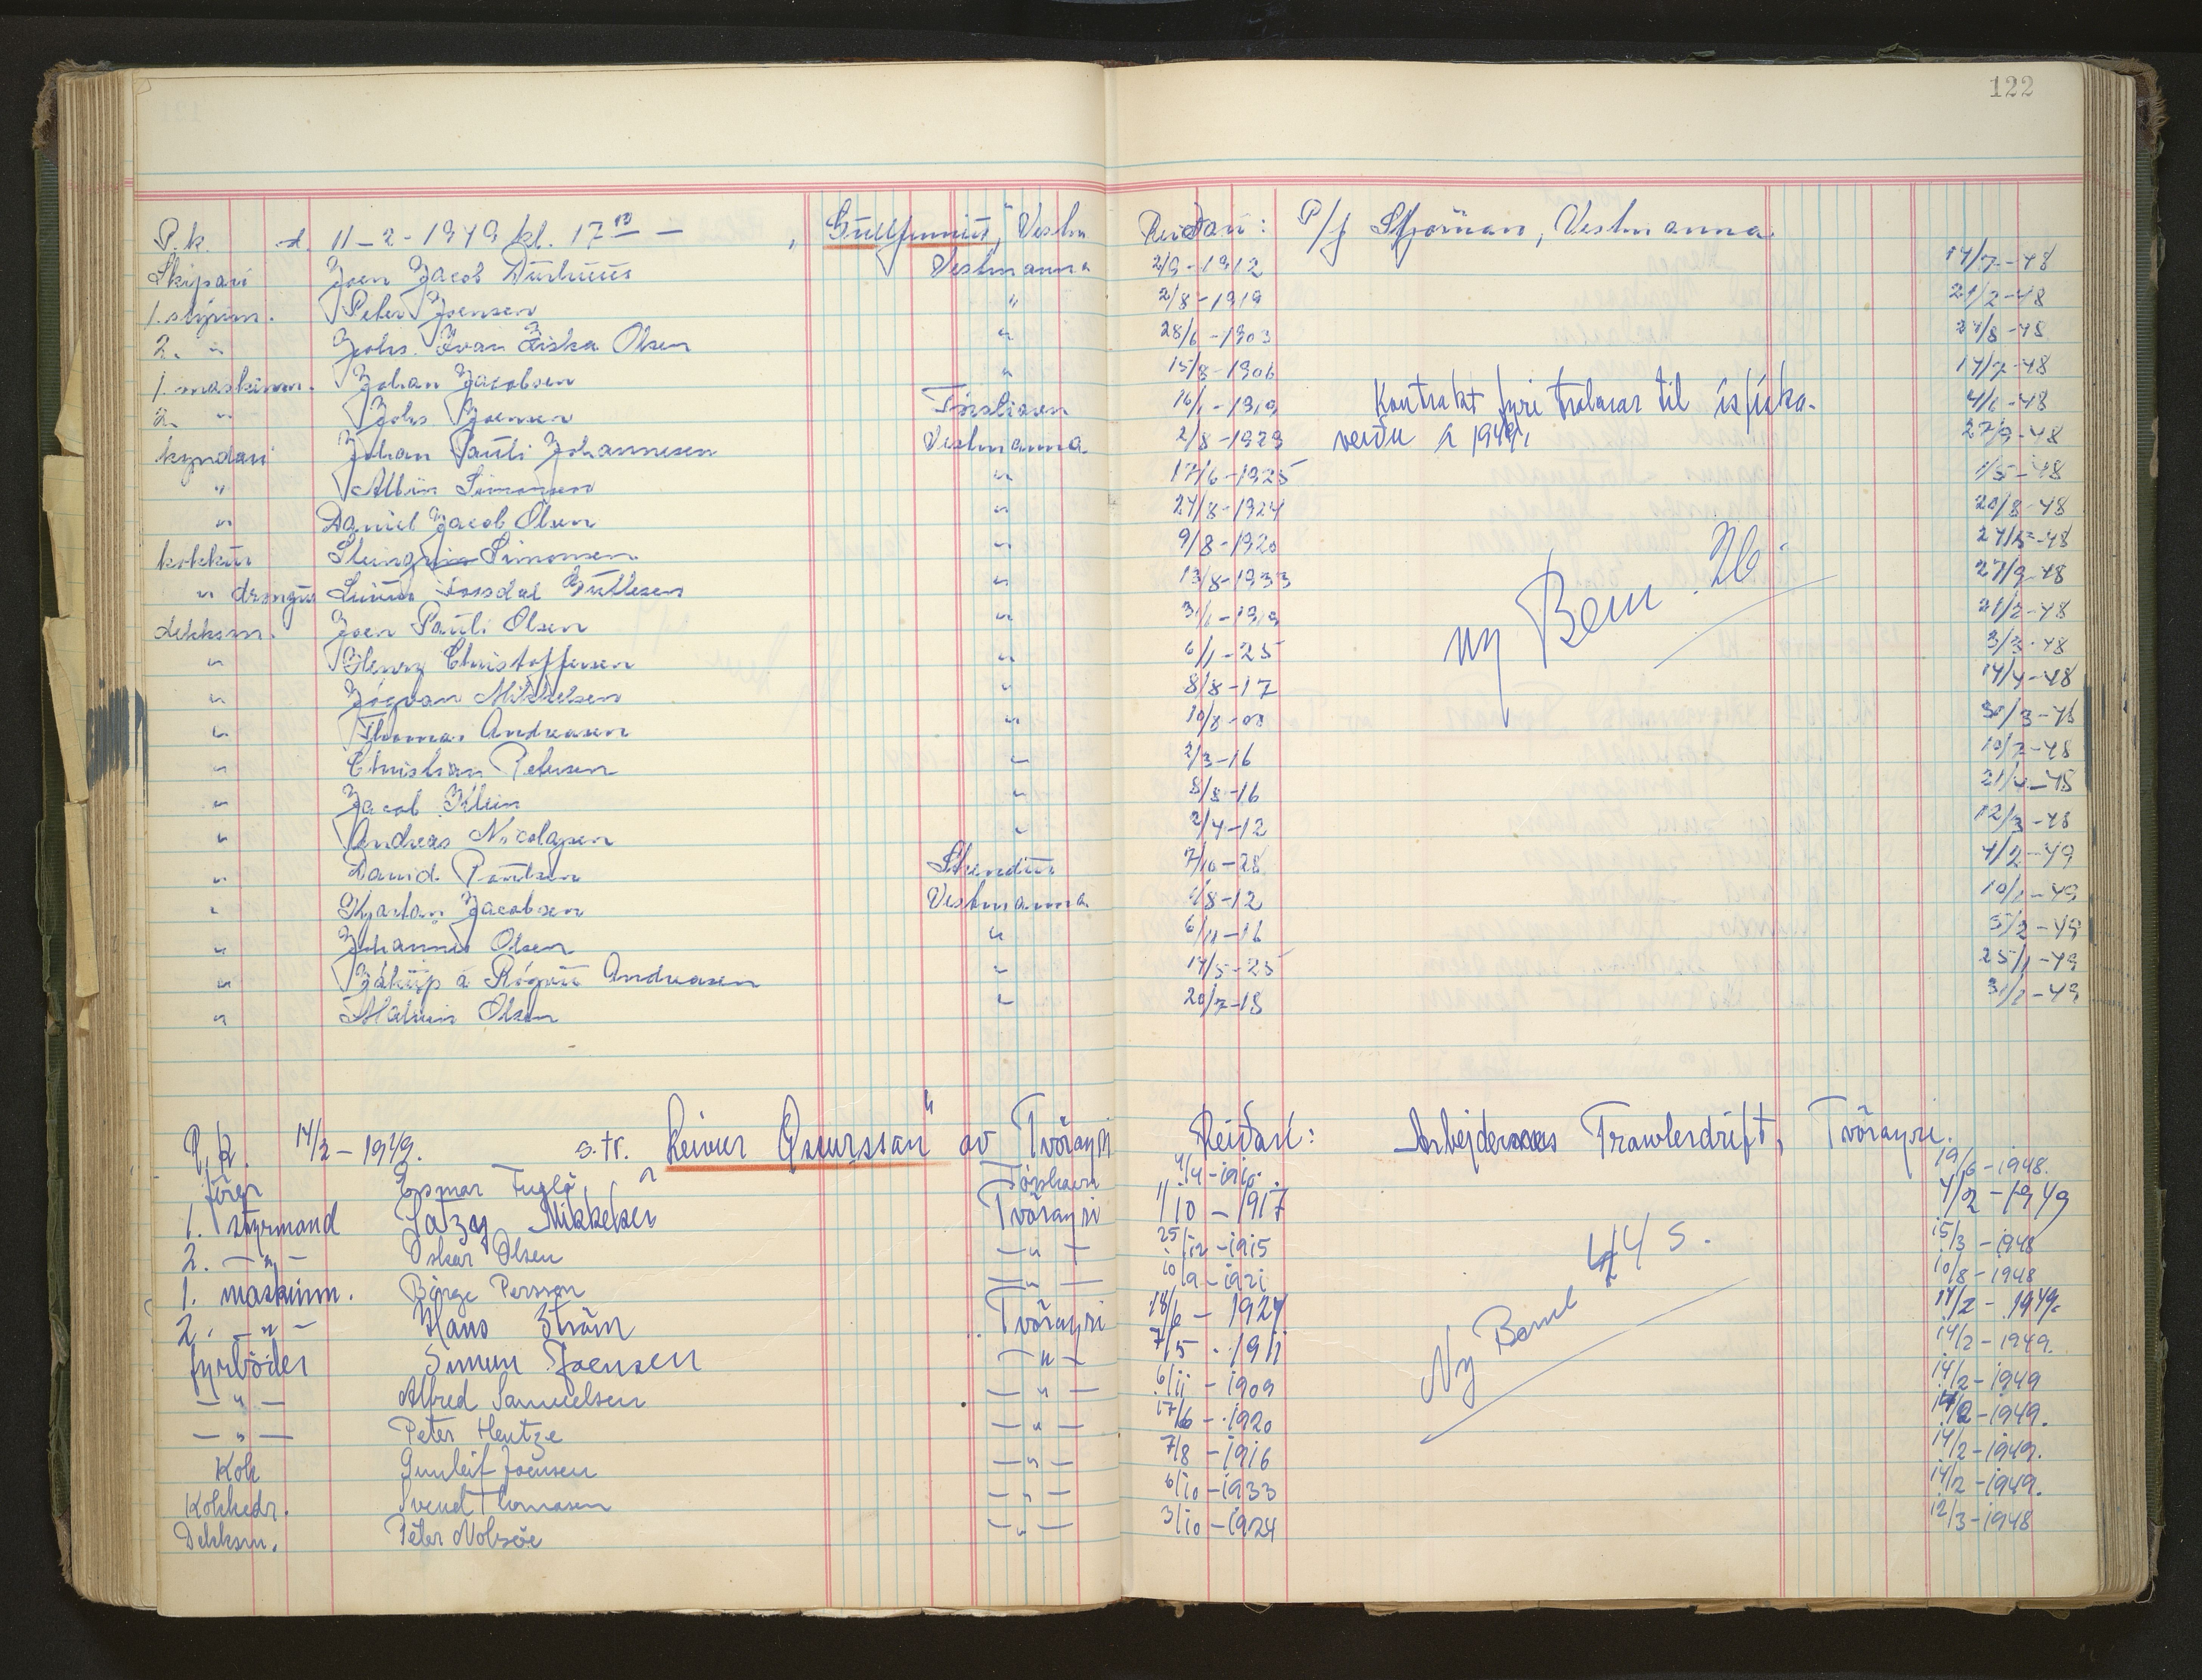 122
P.k. d. 11-2-1949 kl. 17 10 — , "Gullfinnur", Vestm Reiðari: P/f Stjørnan, Vestmanna.
Skipari Joen Jacob Durhuus Vestmanna 2/9-1912 14/7-48
1. stýrim. Peter Joensen " 2/8-1919 21/2-48
2. " Johs. Ivan Ziska Olsen " 28/6-1903 24/8-48
1. maskinm. Johan Jacobsen " 15/8-1906 Kontrakt fyri trolarar til ísfiska- 17/7-48
2. " Johs. Joensen 16/1-1919 veiðu í 1949. 4/1-48
kyndari Johan Pauli Johannesen Vestmanna 2/8-1929 27/9-48
" Albin Simonsen " 17/6-1925 1/5-48
" Daniel Jacob Olsen " 24/8-1924 20/8-48
kokkur Steingrim Simonsen " 9/8-1920 24/5-48
" drongur Fossdal Gullesen " 13/8-1933 ny Bem. 26. 27/9-48
dekksm. Joen Pauli Olsen " 31/1-1919 21/2-48
" Henry Christoffersen " 6/1-25 3/3-48
" Jógvan Mikkelsen " 8/8-17 14/4-48
" Thomas Andreasen " 10/8-08 30/3-48
" Christian Petersen " 2/3-16 10/2-48
" Jacob Klein " 8/8-16 21/4-48
" Andreas Nicolajsen " 2/4-12 12/3-48
" David Poulsen 7/10-28 4/2-49
" Kjartan Jacobsen Vestmanna 1/8-12 10/1-49
" Johannes Olsen " 6/11-16 5/2-49
" Jákup á Rógvu Andreasen " 14/5-25 25/1-49
" Olsen " 20/7-18 31/1-49
P.k. 14/2-1949. s.tr. "Reinur Osurssan" av Tvöroyri Reiðari: Arbejdernes Trawlerdrift, Tvöroyri.
förer Esmar Fuglö, Tórshavn 4/4-1910. 19/6-1948.
1. styrmand Jatzy Mikkelsen Tvöroyri 1/10-1917 4/2-1949
2. —"— Oskar Olsen —"— 25/12-1915 15/3-1948
1. maskinm. Börge Persson —"— 10/9-1921 10/8-1948
2. —"— Hans Ström Tvöroyri 18/6-1927 Ny Bem 44 S. 14/2-1949.
fyrböder Simun Joensen —"— 7/5-1911 14/2-1949.
—"— Alfred Samuelsen —"— 6/11-1909 14/2-1949
—"— Peter Hentze —"— 17/6-1920 14/2-1949.
Kok Gunleif Joensen —"— 7/8-1916 14/2-1949.
Kokkedr. Svend Thomasen —"— 6/10-1933 14/2-1949.
Dekksm. Peter Nolsöe —"— 3/10-1924 12/3-1948